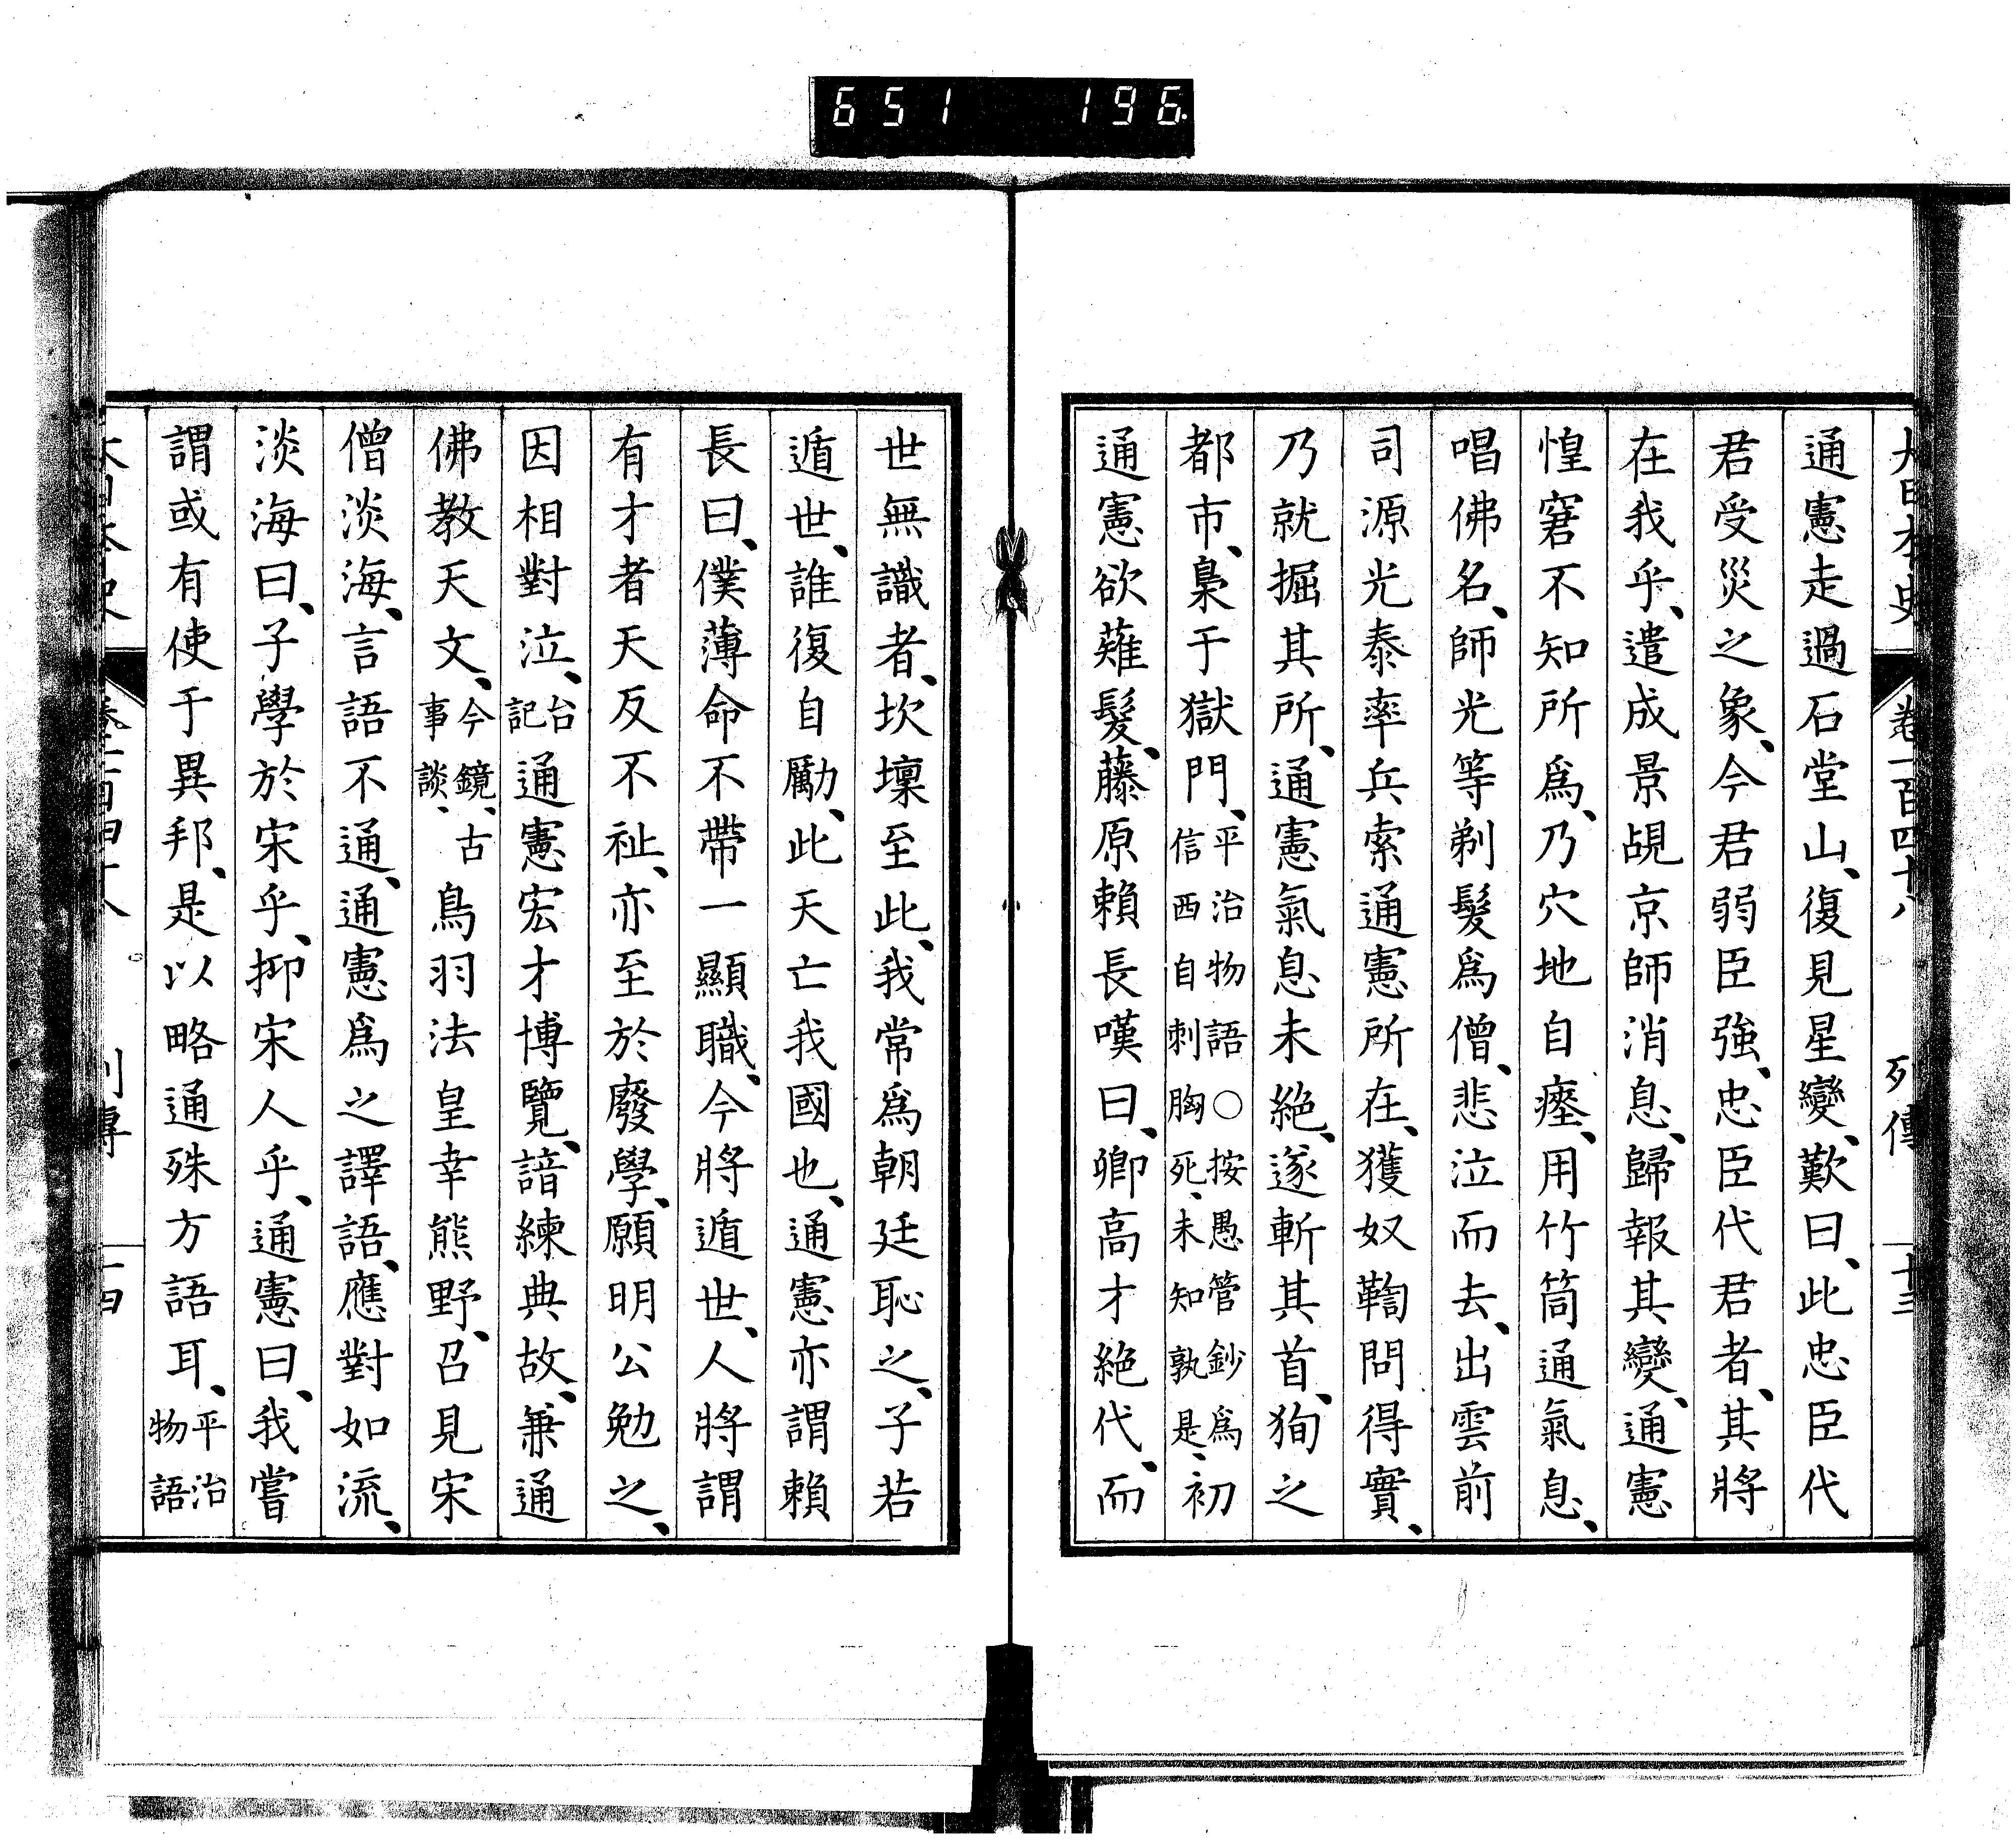 651 196
大日本史 卷一百四十八 列傳 十三
通憲走過石堂山、復見星變、歎曰、此忠臣代
君受災之象、今君弱臣強、忠臣代君者、其將
在我乎、遣成景覘京師消息、歸報其變、通憲
惶窘不知所爲、乃穴地自瘞、用竹筒通氣息、
唱佛名、師光等剃髮爲僧、悲泣而去、出雲前
司源光泰率兵索通憲所在、獲奴鞫問得實、
乃就掘其所、通憲氣息未絶、遂斬其首、狥之
都市、梟于獄門、平治物語○按愚管鈔爲信西自刺胸死、未知孰是、初
通憲欲薙髮、藤原賴長嘆曰、卿高才絶代、而
世無識者、坎壈至此、我常爲朝廷恥之、子若
遁世、誰復自勵、此天亡我國也、通憲亦謂賴
長曰、僕薄命不帶一顯職、今將遁世、人將謂
有才者天反不祉、亦至於廢學、願明公勉之、
因相對泣、台記通憲宏才博覽、諳練典故、兼通
佛教天文、今鏡、古事談、鳥羽法皇幸熊野、召見宋
僧淡海、言語不通、通憲爲之譯語、應對如流、
淡海曰、子學於宋乎、抑宋人乎、通憲曰、我嘗
謂或有使于異邦、是以略通殊方語耳、平治物語
大日本史 卷一百四十八 列傳 十四